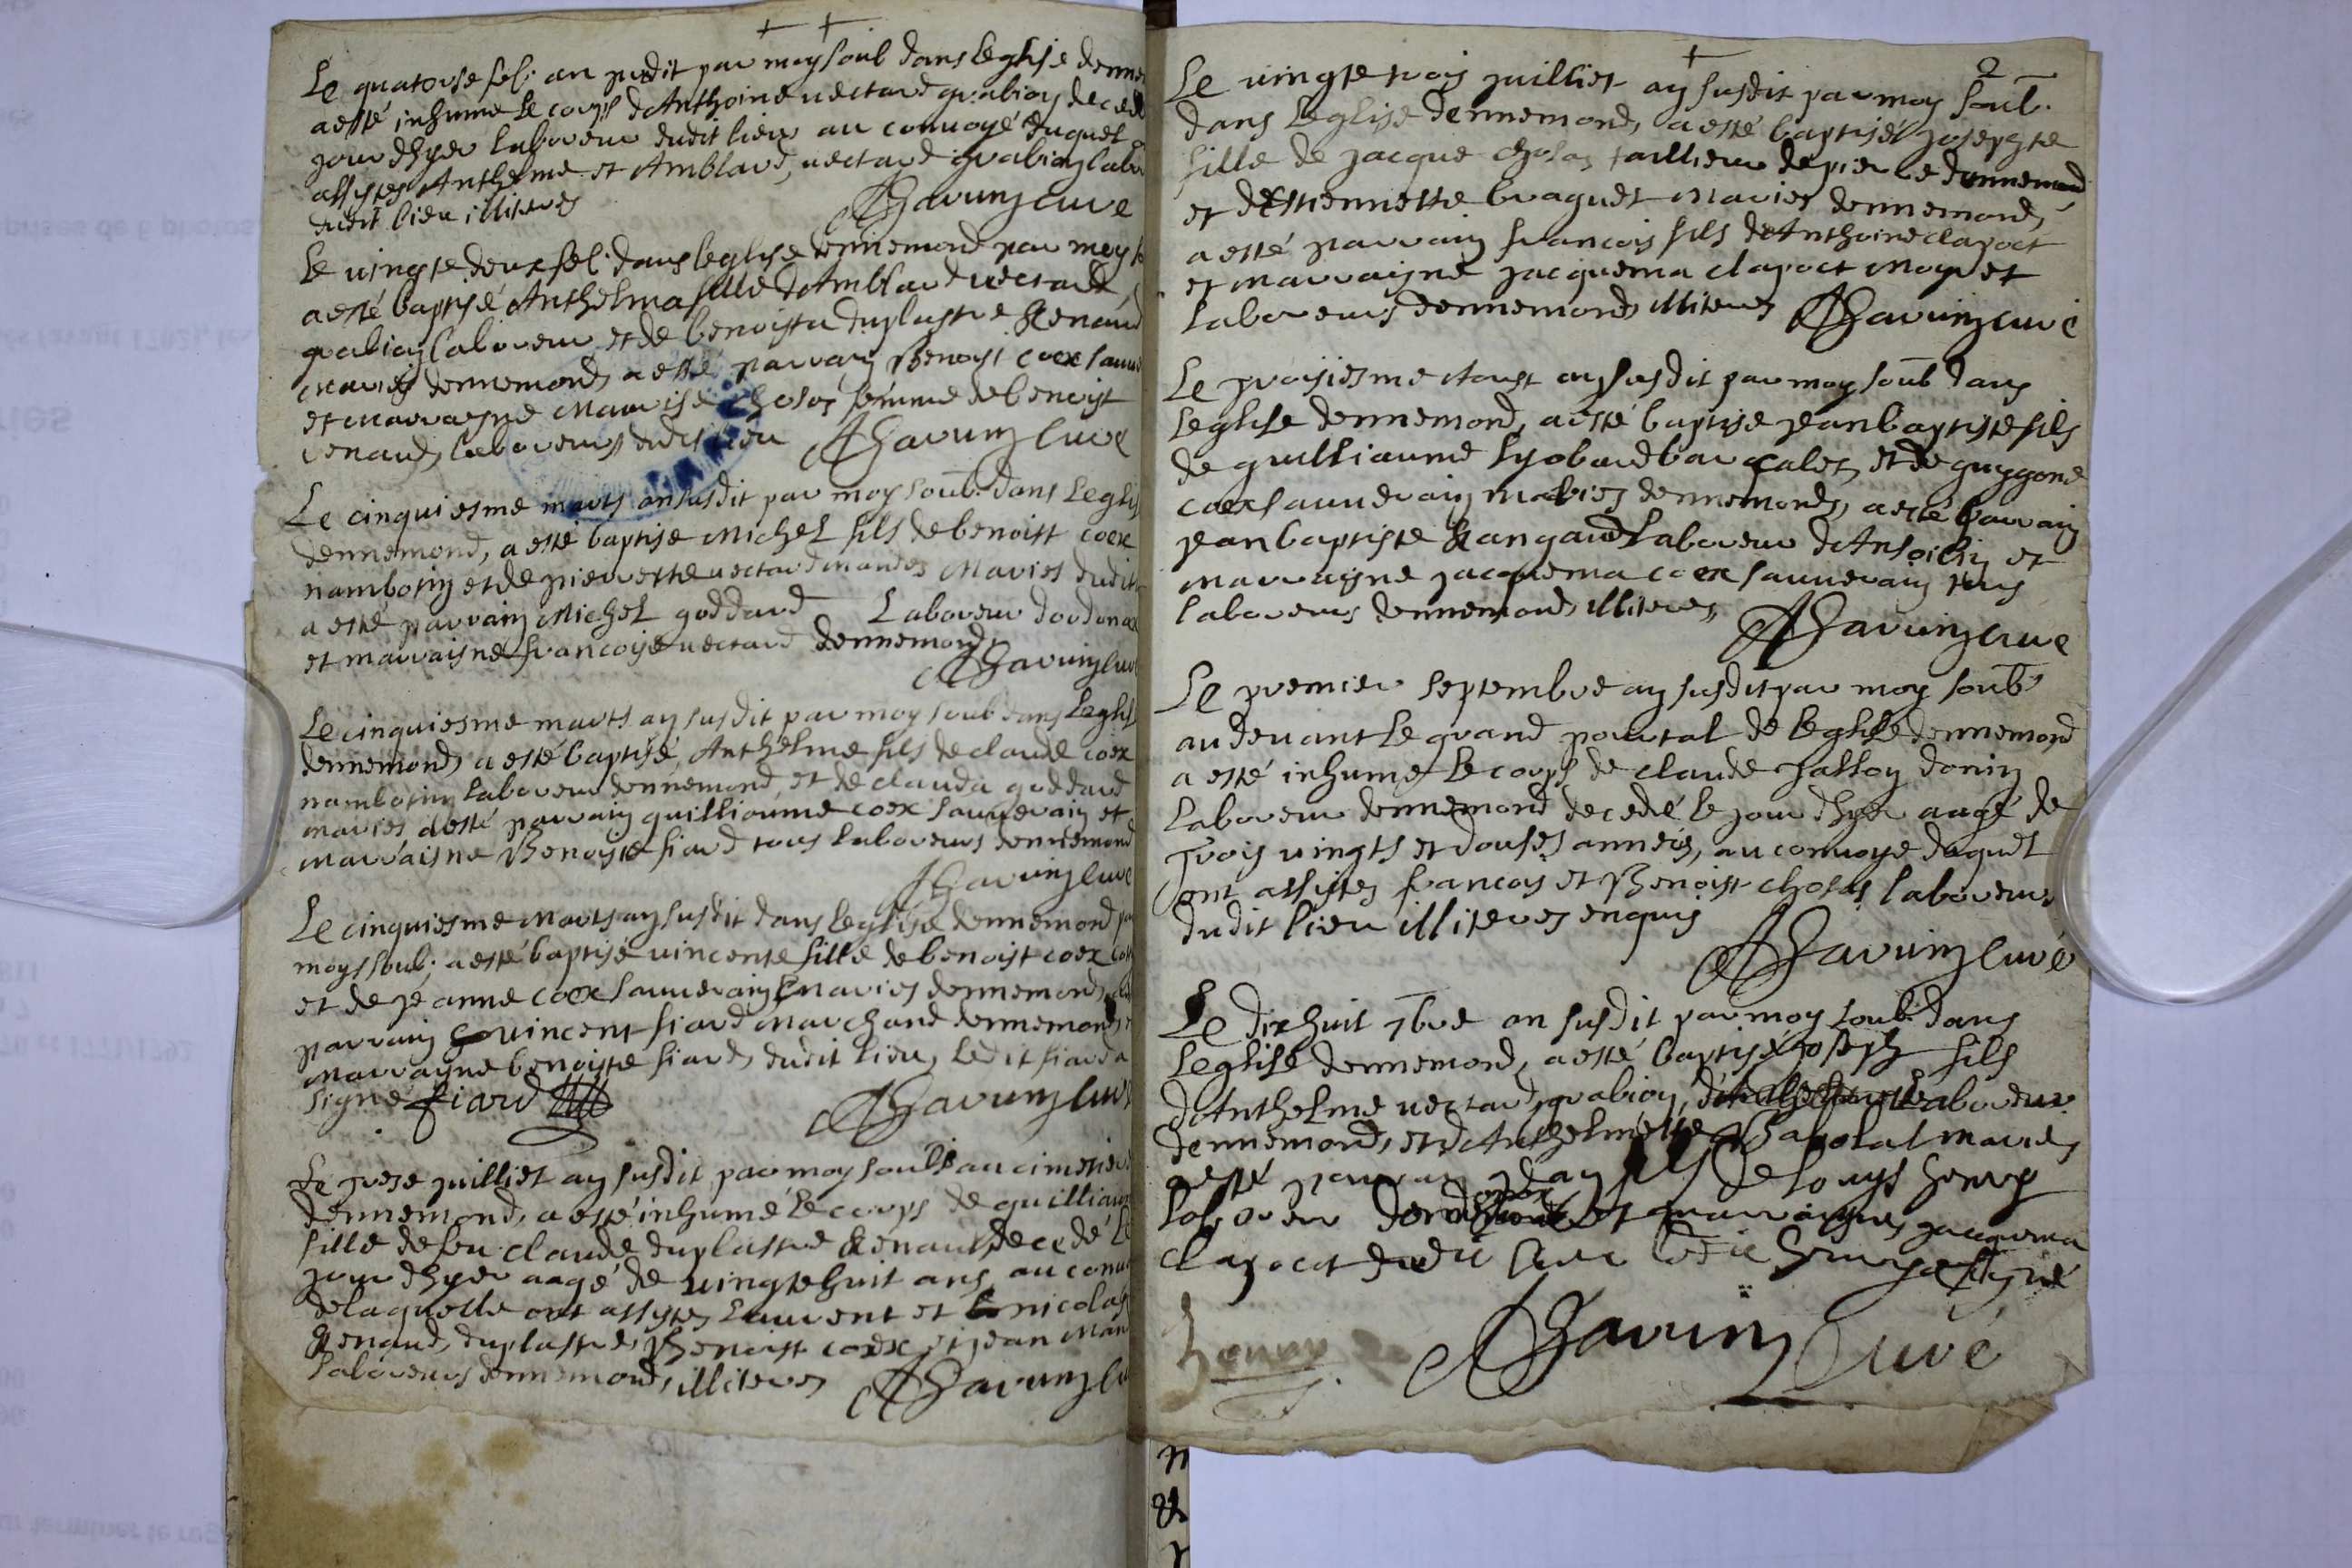 Le quatorse feb. an predit par moy soub dans leglise denne
a esté inhumé le corps d'Anthoine nectard grabioz decedé
jour dhyer laboreur dudit lieu au convoyé duquel
assystes Anthelme et Amblard nectard grabioz labo
dudit lieu illiteres
AThavuin curé
Le vingtedeux feb. dans leglise dennemond par moy
a esté baptisé Anthelma fille d'Amblard nectard,
grabioz laboreur et de benoista duplastre Renaud
mariés dennemond, a esté parrain Benoist coex sauve
et marraisne Maurise cholas femme de benoist
renaud, laboreurs dudit lieu AThavuin curé
Le cinquiesme marts an susdit par moy soub. dans leglis
dennemond, a esté baptisé Michel fils de benoist coex
nambotin et de pierrette nectard mandes Maries dudit
a esté parrain Michel goddard Laboreur dordona
et marraisne francoise nectard dennemond
AThavuin cur
Le cinquiesme marts an susdit par moy soub dans leglis
dennemond, a esté baptisé, Anthelme fils de claude coex
nambotin laboreur dennemond, et de clauda goddard
maries a esté parrain guilliaume coex sauverain et
marraisne Benoiste fiard tous laboreurs dennemond
AThavuin curé
Le cinquiesme Marts an susdit dans leglise dennemond p
moy soub: a esté baptisé vincente fille de benoist coex
et de jeanne coex sauverain Maries dennemond,
parrain vincent fiard Marchand dennemond,
marrayne benoiste fiard, dudit lieu, ledit fiard a
signé fiard
AThavuin cur
Le treze juilliet an susdit par moy soub au cimetier
dennemond, a esté inhumé le corps de guilliau
fille de feu claude duplastre Renaud, decedé le
jour dhyer aagé de vingtehuit ans, au conv
de laquelle ont assystes Laurent et nicolas
Renaud, duplastre, Benoist coex et jean Man
laboreurs dennemond, illiteres AThavuin cu
2
Le vingtetrois juilliet an susdit par moy soub.
dans leglise dennemond, a esté baptisé josephte
fille de jacque cholas taillieur de pierre dennemond
et d'Estiennette braguet Maries dennemond,
a esté parrain francois fils d'Anthoine clapoct
et marraigne jacquema clapoct
laboreurs dennemond illiteres AThavuin curé
Le troisiesme Aoust an susdit par moy soub dans
leglise dennemond, a esté baptisé jeanbaptiste fils
de guilliaume lyobard et de guygone
coex sauverain maries dennemond, a esté parrain
jeanbaptiste Rangaud laboreur et
marraigne jacquema coex sauverain tous
laboreurs dennemond, illiteres
AThavuin curé
Le premier septembre an susdit par moy soub
au devant le grand pourtal de leglise dennemond
a esté inhumé le corps de claude donin
laboreur dennemond decedé le jour dhyer aagé de
trois vingts et douses années, au convoye duquel
ont assistes francois et Benoist cholas laboreurs
dudit lieu illiteres enquis
AThavuin curé
Le dixhuit 7bre an susdit par moy soub dans
leglise dennemond, a esté baptisé joseph fils
d'Anthelme nectard, grabioz, laboreur
dennemond, et d'Anthelmette maries
a esté parrain fils de louys henry
laboreur et marraigne, jacquema
clapoct dudit lieu ledit henry a signé
henry AThavuin Curé